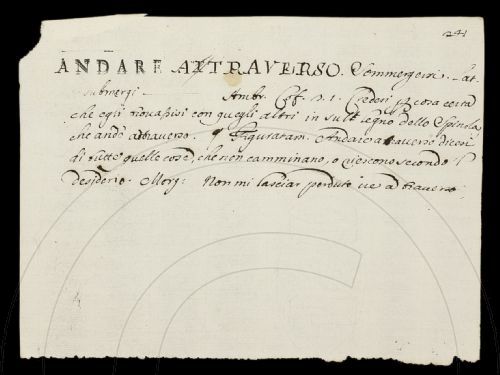 241
ANDARE ATTRAVERSO. Sommergersi. Lat.
submergi. Ambr. Cof. 5. 1. Credesi p cosa certa
che egli rinvapisi con quegli altri in sull legno dello Spinola
che andò attraverso. Figuratam. Andare attraverso dicesi
di tutte quelle cose, che non camminano, o riescono secondo l
desiderio. Morg: Non mi lasciar perduto ire a traverso.